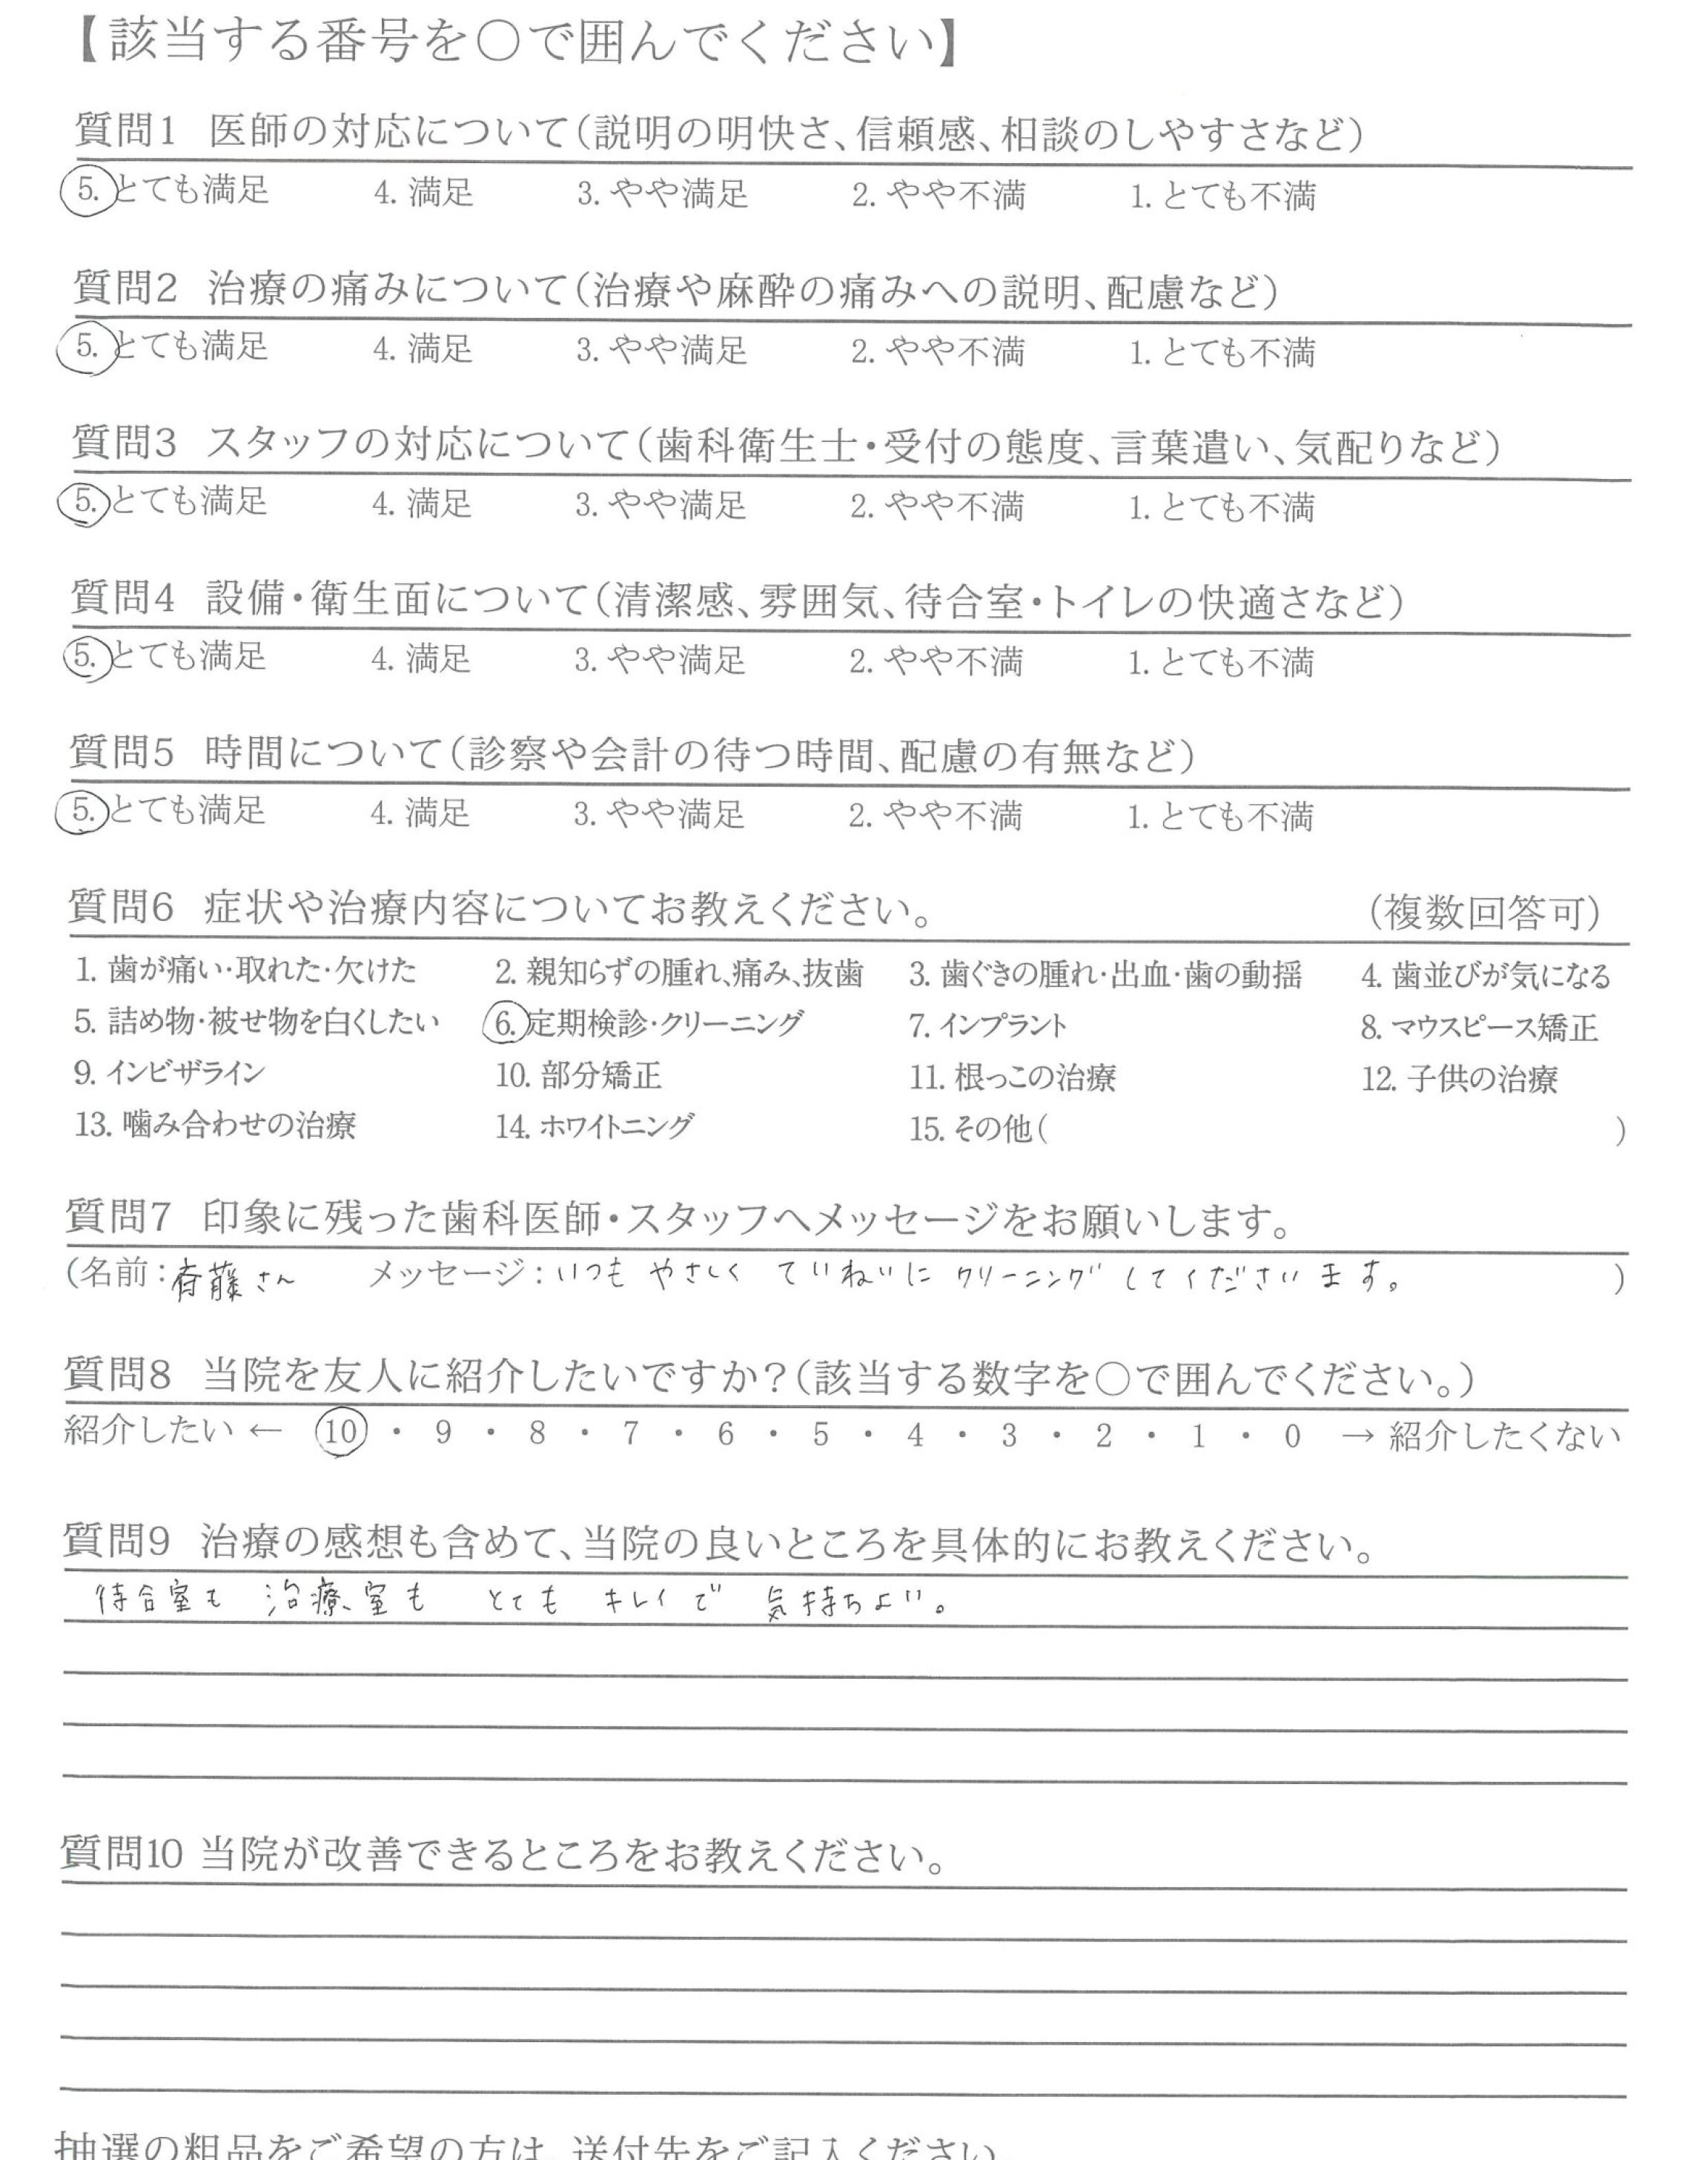 【該当する番号を○で囲んでください】
質問1 医師の対応について（説明の明快さ、信頼感、相談のしやすさなど）
5. とても満足 4. 満足 3. やや満足 2. やや不満 1. とても不満
質問2 治療の痛みについて（治療や麻酔の痛みへの説明、配慮など）
5. とても満足 4. 満足 3. やや満足 2. やや不満 1. とても不満
質問3 スタッフの対応について（歯科衛生士・受付の態度、言葉遣い、気配りなど）
5. とても満足 4. 満足 3. やや満足 2. やや不満 1. とても不満
質問4 設備・衛生面について（清潔感、雰囲気、待合室・トイレの快適さなど）
5. とても満足 4. 満足 3. やや満足 2. やや不満 1. とても不満
質問5 時間について（診察や会計の待つ時間、配慮の有無など）
5. とても満足 4. 満足 3. やや満足 2. やや不満 1. とても不満
質問6 症状や治療内容についてお教えください。 （複数回答可）
1. 歯が痛い・取れた・欠けた 2. 親知らずの腫れ、痛み、抜歯 3. 歯ぐきの腫れ・出血・歯の動揺 4. 歯並びが気になる
5. 詰め物・被せ物を白くしたい 6. 定期検診・クリーニング 7. インプラント 8. マウスピース矯正
9. インビザライン 10. 部分矯正 11. 根っこの治療 12. 子供の治療
13. 噛み合わせの治療 14. ホワイトニング 15. その他（ ）
質問7 印象に残った歯科医師・スタッフへメッセージをお願いします。
（名前：斉藤さん メッセージ：いつも やさしく ていねいに クリーニング してくださいます。 ）
質問8 当院を友人に紹介したいですか？（該当する数字を○で囲んでください。）
紹介したい ← 10 ・ 9 ・ 8 ・ 7 ・ 6 ・ 5 ・ 4 ・ 3 ・ 2 ・ 1 ・ 0 → 紹介したくない
質問9 治療の感想も含めて、当院の良いところを具体的にお教えください。
待合室も 治療室も とても キレイで 気持ちよい。
質問10 当院が改善できるところをお教えください。
抽選の粗品をご希望の方は、送付先をご記入ください。